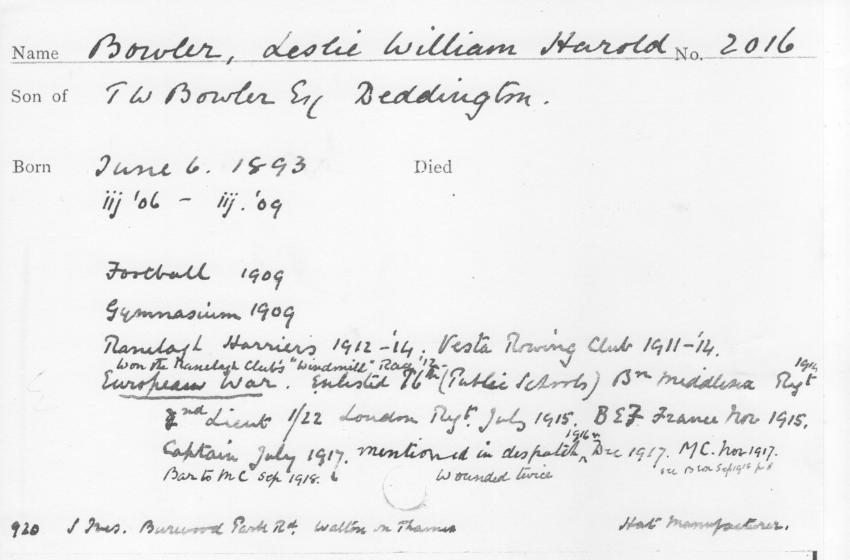 Name Bowler, Leslie William Harold No. 2016
Son of T W Bowler Esq Deddington.
Born June 6. 1893 Died
iij '06 - iij. '09
Football 1909
Gymnasium 1909
Ranelagh Harriers 1912-'14. Vesta Rowing Club 1911-'14.
Won the Ranelagh Club's "Windmill" Race '12
European War. Enlisted 16th (Public Schools) Bn Middlesex Regt 1914
2nd Lieut 1/22 London Regt. July 1915. BEF France Nov 1915.
Captain July 1917. mentioned in despatch 1916 Dec 1917. MC. Nov 1917.
Bar to MC Sep 1918. Wounded twice see Sep 1918 p 8
920 S Ives. Burwood Park Rd. Walton on Thames Hat Manufacturer.